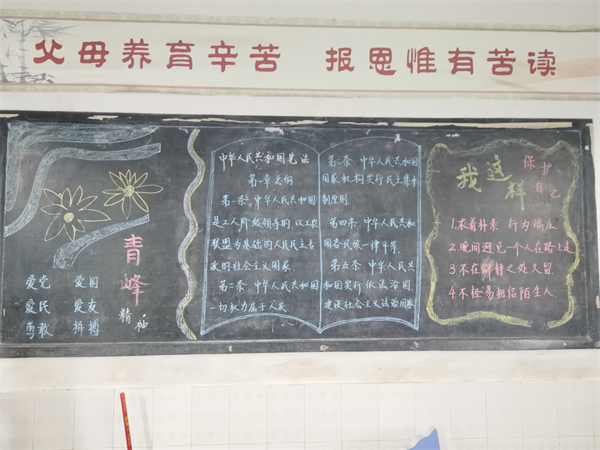 父母养育辛苦 报恩惟有苦读
青峰
精神
爱党 爱国
爱民 爱友
勇敢 拼搏
中华人民共和国宪法
第一章总纲
第一条 中华人民共和国
是工人阶级领导的,以工农
联盟为基础的人民民主专
政的社会主义国家.
第二条 中华人民共和国
一切权力属于人民
第三条 中华人民共和国
国家机构实行民主集中
制原则.
第四条 中华人民共和
国各民族一律平等.
第五条 中华人民共
和国实行依法治国,
建设社会主义法治国家
我这样
保护
自己
1.衣着朴素 行为端庄
2.晚间避免一个人在路上走
3.不在僻静之处久留.
4.不轻易相信陌生人.